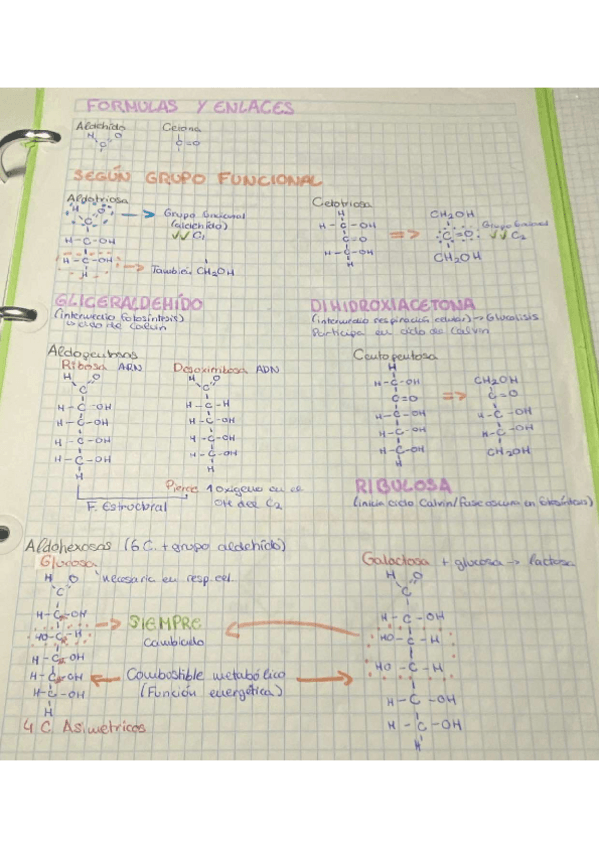 FORMULAS Y ENLACES
Aldehido Cetona
H O
C C=O
SEGÚN GRUPO FUNCIONAL
Aldotriosa
H O
C
H-C-OH
H-C-OH
H
Grupo funcional
(aldehido)
C1
También CH2OH
Cetotriosa
H
H-C-OH
C=O
H-C-OH
H
CH2OH
C=O
CH2OH
Grupo funcional
C2
GLICERALDEHÍDO
(intermedio fotosíntesis)
ciclo de Calvin
DIHIDROXIACETONA
(intermedio respiración celular) → Glucolisis
Participa en ciclo de Calvin
Aldopentosas
Ribosa ARN
H O
C
H-C-OH
H-C-OH
H-C-OH
H-C-OH
H
Desoxirribosa ADN
H O
C
H-C-H
H-C-OH
H-C-OH
H-C-OH
H
F. Estructural
Pierde 1 oxigeno en el
OH del C2
Cetopentosa
H
H-C-OH
C=O
H-C-OH
H-C-OH
H-C-OH
H
CH2OH
C=O
H-C-OH
H-C-OH
CH2OH
RIBULOSA
(inicia ciclo Calvin/Fase oscura en fotosíntesis)
Aldohexosas (6 C. + grupo aldehído)
Glucosa
H O
C
Necesaria en resp. cel.
H-C-OH
HO-C-H
H-C-OH
H-C-OH
H-C-OH
H
SIEMPRE
cambiado
Combustible metabólico
(Función energética)
4 C Asimetricos
Galactosa + glucosa → lactosa
H O
C
H-C-OH
HO-C-H
HO-C-H
H-C-OH
H-C-OH
H